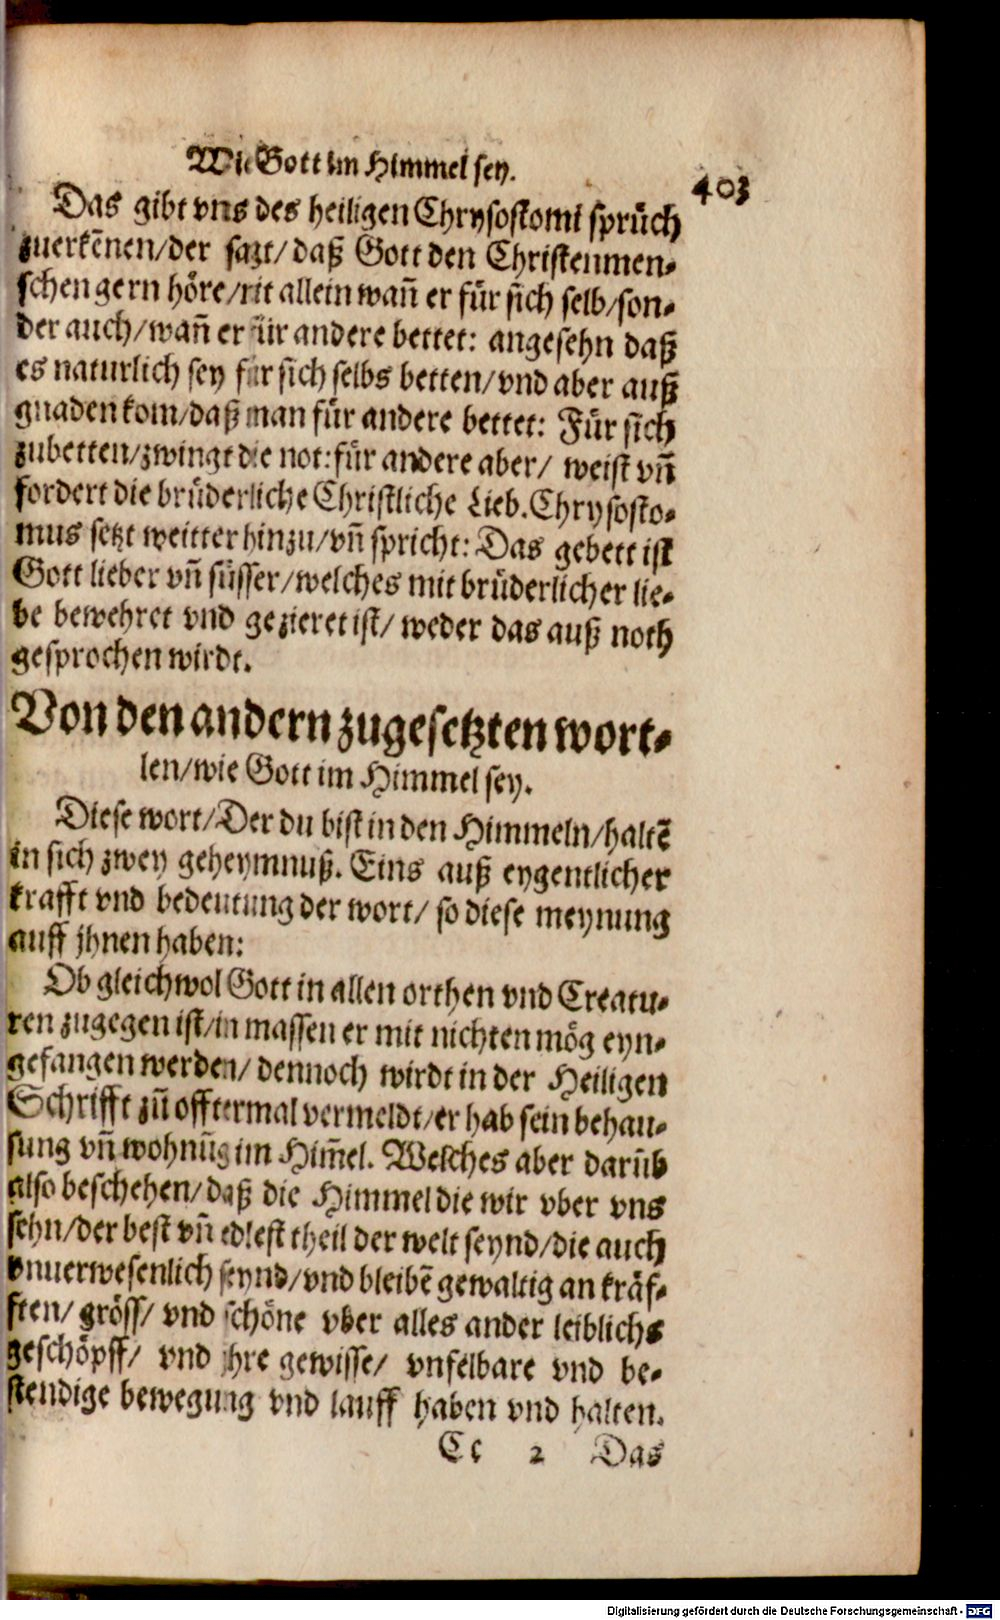 Wie Gott im Himmel sey.
403
Das gibt vns des heiligen Chrysostomi sprüch
zuerkẽnen/der sagt/daß Gott den Christenmen-
schen gern höre/nit allein wañ er für sich selb/son-
der auch/wañ er für andere bettet: angesehn daß
es naturlich sey für sich selbs betten/vnd aber auß
gnaden kom/daß man für andere bettet: Für sich
zubetten/zwingt die not: für andere aber/ weist vñ
fordert die brüderliche Christliche Lieb. Chrysosto-
mus setzt weitter hinzu/vñ spricht: Das gebett ist
Gott lieber vñ süsser/welches mit brüderlicher lie-
be bewehret vnd gezieret ist/ weder das auß noth
gesprochen wirdt.
Von den andern zugesetzten wort-
len/wie Gott im Himmel sey.
Diese wort/Der du bist in den Himmeln/haltẽ
in sich zwey geheymnuß. Eins auß eygentlicher
krafft vnd bedeutung der wort/ so diese meynung
auff jhnen haben:
Ob gleichwol Gott in allen orthen vnd Creatu-
ren zugegen ist/in massen er mit nichten mög eyn-
gefangen werden/ dennoch wirdt in der Heiligen
Schrifft zũ offtermal vermeldt/er hab sein behau-
sung vñ wohnũg im Him̃el. Welches aber darũb
also beschehen/daß die Himmel die wir vber vns
sehn/der best vñ edlest theil der welt seynd/die auch
vnuerwesenlich seynd/vnd bleibẽ gewaltig an kräf-
ften/ gröss/ vnd schöne vber alles ander leiblichs
geschöpff/ vnd jhre gewisse/ vnfelbare vnd be-
stendige bewegung vnd lauff haben vnd halten.
Cc 2 Das
Digitalisierung gefördert durch die Deutsche Forschungsgemeinschaft - DFG